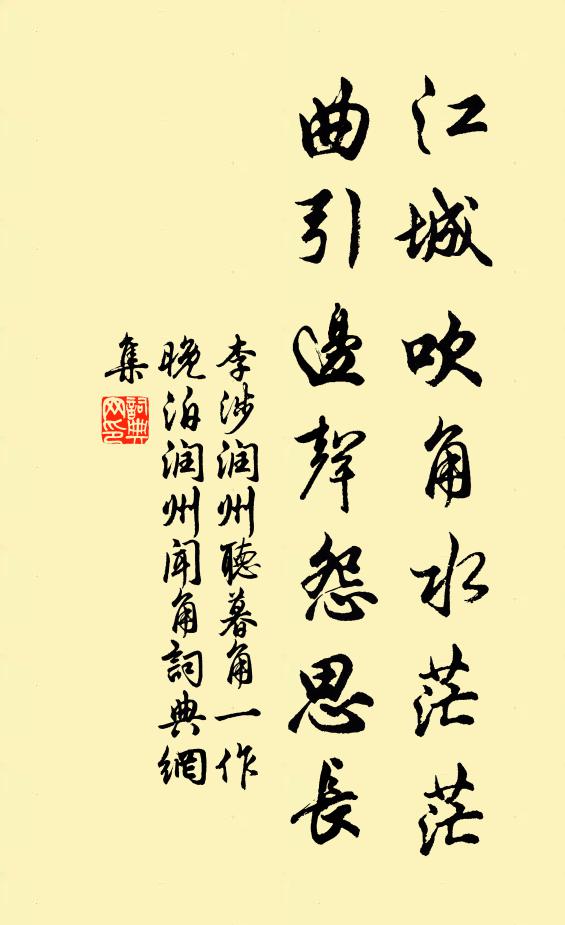 江城吹角水茫茫
曲引邊聲怨思長
李涉润州聽暮角一作
晚泊润州闻角詞典網
集
詞典網印